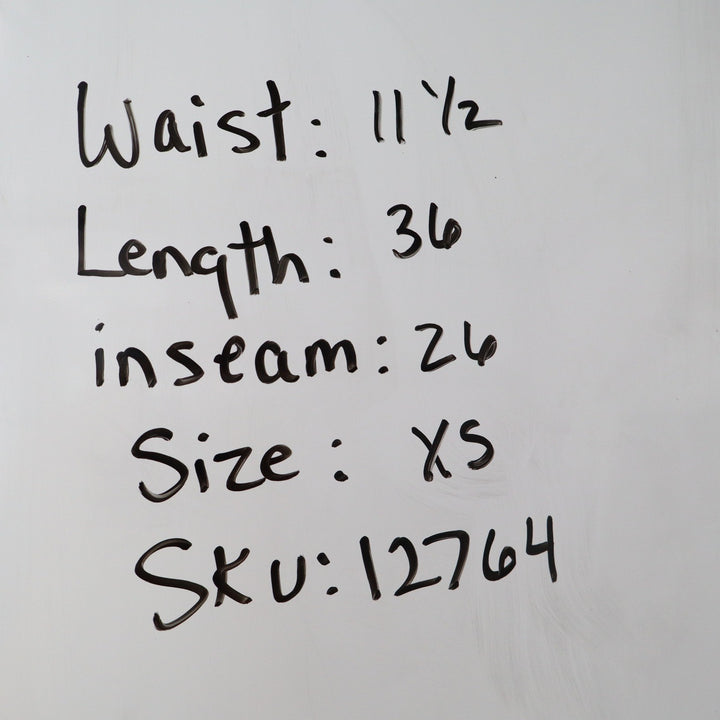 Waist: 11 1/2
Length: 36
inseam: 26
Size: XS
SKU: 12764